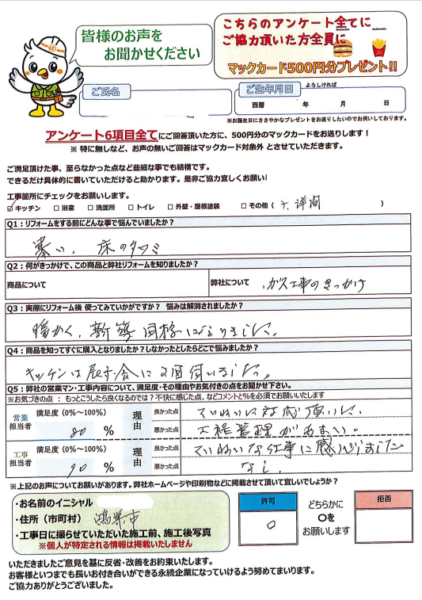 皆様のお声を
お聞かせください
こちらのアンケート全てに
ご協力頂いた方全員に
マックカード500円分プレゼント!!
ご氏名
よろしければ
ご生年月日
西暦 年 月 日
※お誕生日にささやかなプレゼントをお送りしたいのでお伺いしております。
アンケート6項目全てにご回答頂いた方に、500円分のマックカードお送りします！
※ 特に無しなど、お声の無いご回答はマックカード対象外 とさせていただきます。
ご満足頂けた事、至らなかった点など些細な事でも結構です。
できるだけ具体的に書いていただけると助かります。是非ご協力宜しくお願い
工事箇所にチェックをお願いします。
☑キッチン □浴室 □洗面所 □トイレ □外壁・屋根塗装 □その他（ 洋間 ）
Q1：リフォームをする前にどんな事で悩んでいましたか？
寒い、床のタワミ
Q2：何がきっかけで、この商品と弊社リフォームを知りましたか？
商品について
弊社について
ガス工事のきっかけ
Q3：実際にリフォーム後 使ってみていかがですか？ 悩みは解消されましたか？
暖かく、新築同様になりました。
Q4：商品を知ってすぐに購入となりましたか？しなかったとしたらどこで悩みましたか？
キッチンは展示会に2回伺いました。
Q5：弊社の営業マン・工事内容について、満足度・その理由やお気付きの点をお聞かせ下さい。
※お気づきの点：もっとこうしたら良くなるのでは？不快に感じた点、などコメントと％を必須でお願いいたします
営業
担当者
満足度（0%～100%）
80 %
理由
良かった点
ていねいに対応頂いた。
悪かった点
工事
担当者
満足度（0%～100%）
90 %
理由
良かった点
ていねいな仕事に感じました
悪かった点
なし。
※上記のお声についてお願いがあります。弊社ホームページや印刷物などに掲載させて頂いて宜しいでしょうか？
・お名前のイニシャル
・住所（市町村） 鴻巣市
・工事日に撮らせていただいた施工前、施工後写真
※個人が特定される情報は掲載いたしません
許可
○
どちらかに
○を
お願いします
拒否
いただきましたご意見を基に反省・改善をお約束いたします。
お客様といつまでも長いお付き合いができる永続企業になっていけるよう努めてまいります。
ご協力ありがとうございました。